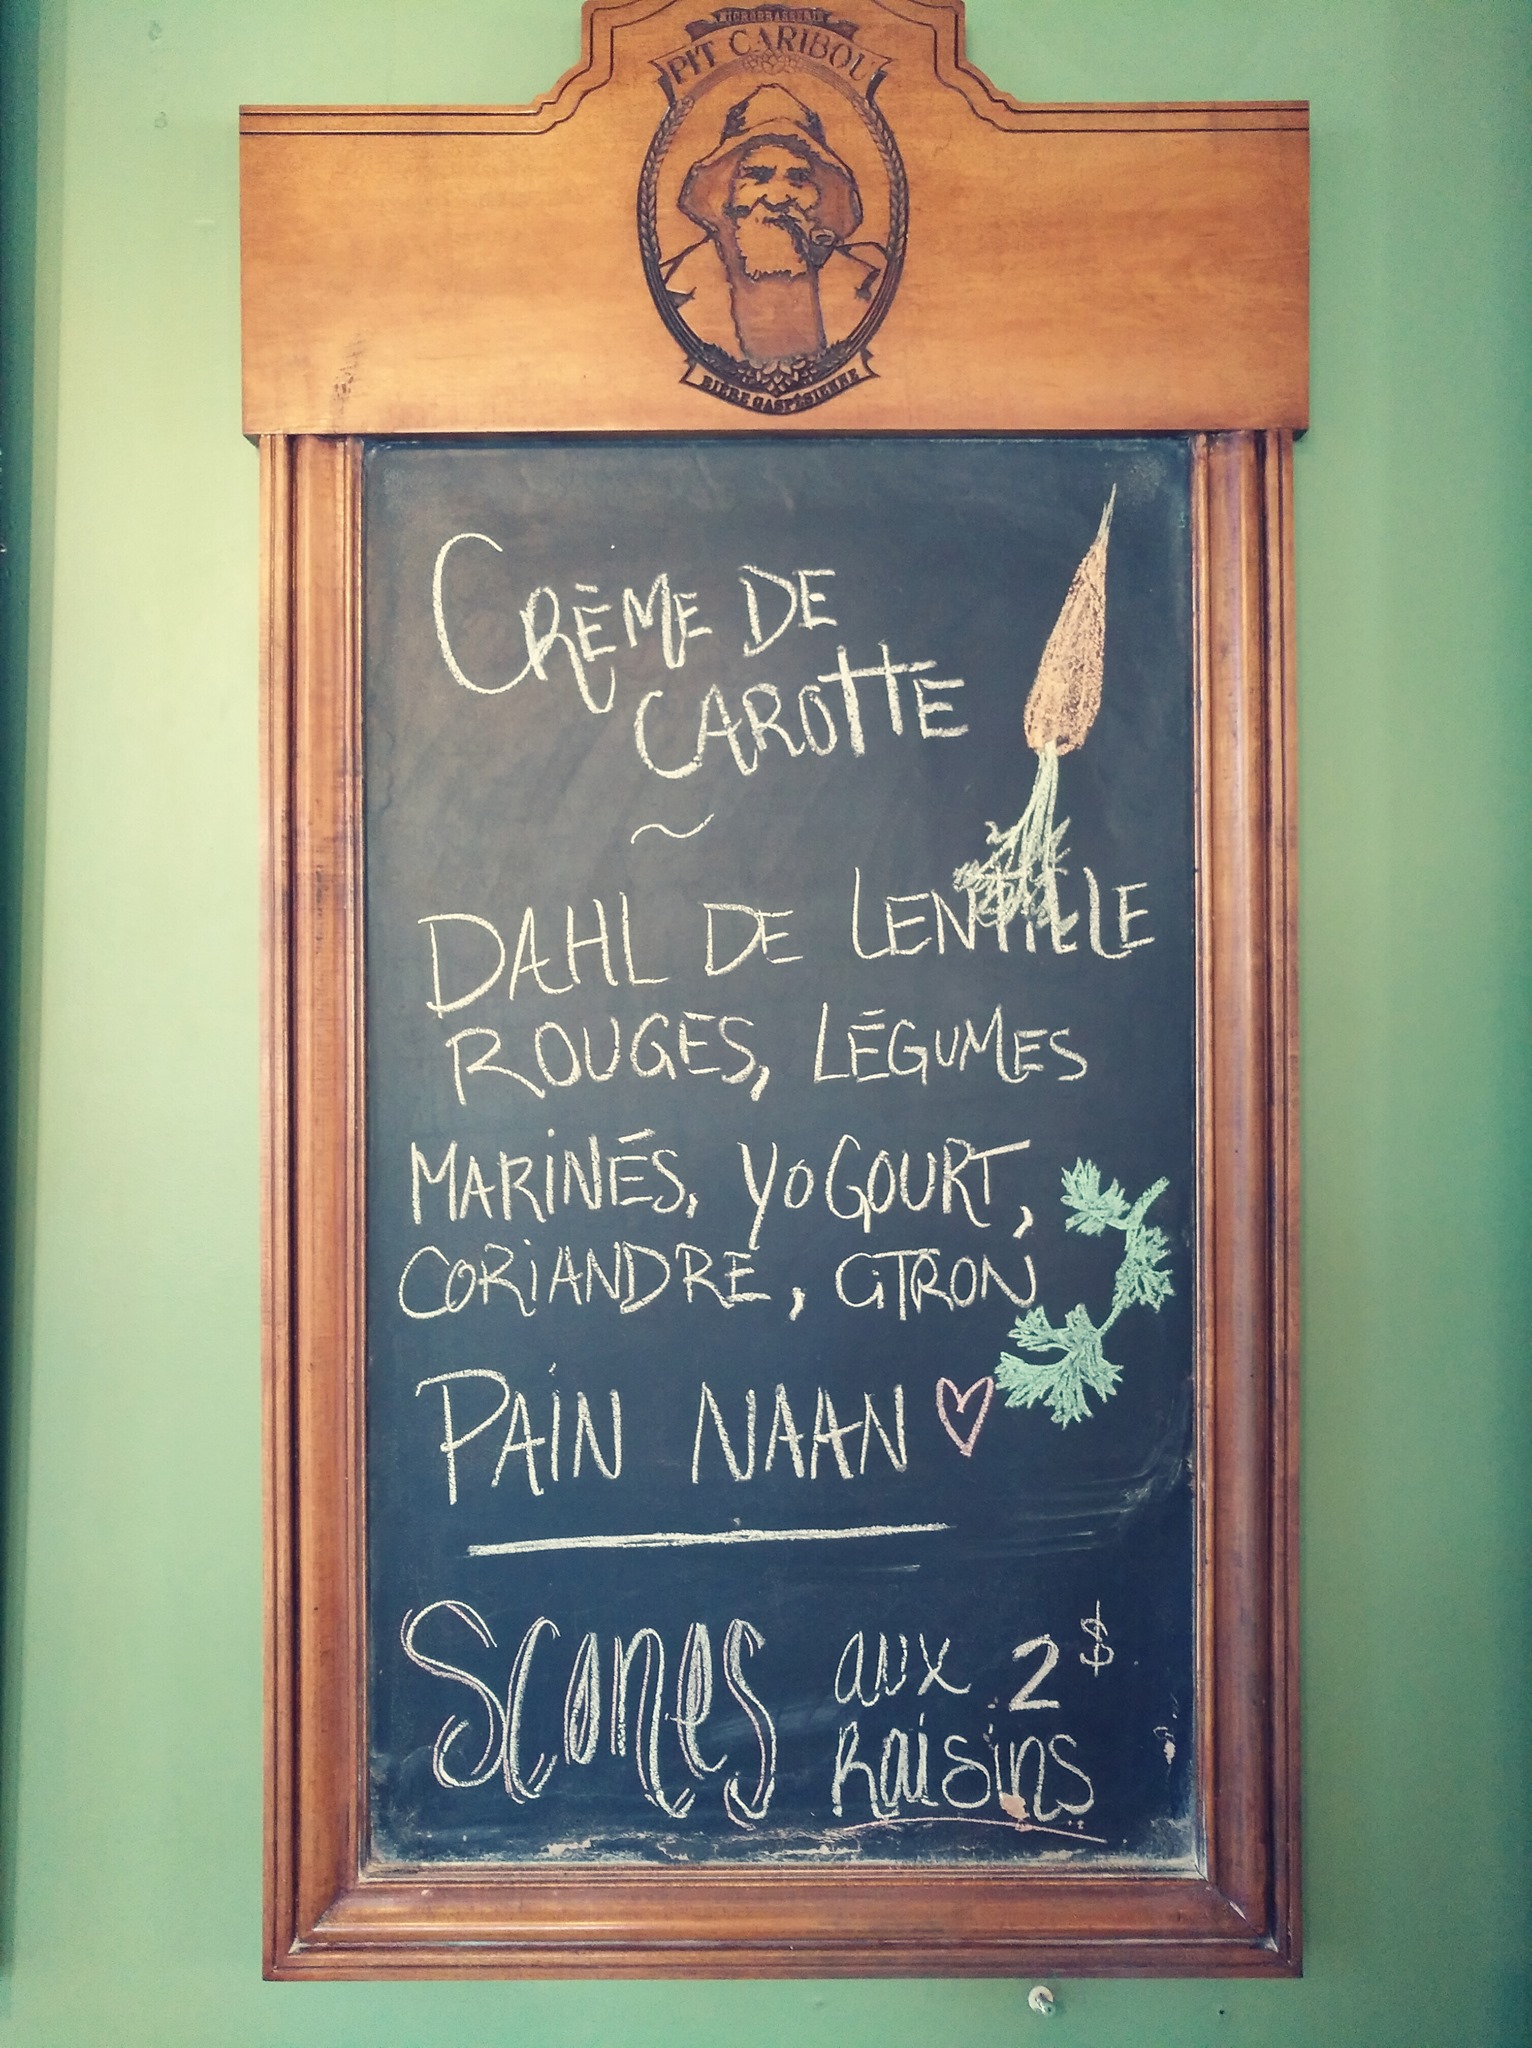 MICROBRASSERIE
PIT CARIBOU
BIÈRE GASPÉSIENNE
CRÈME DE
CAROTTE
~
DAHL DE LENTILLE
ROUGES, LÉGUMES
MARINÉS, YOGOURT,
CORIANDRE, CITRON
PAIN NAAN ♡
Scones aux 2$
Raisins